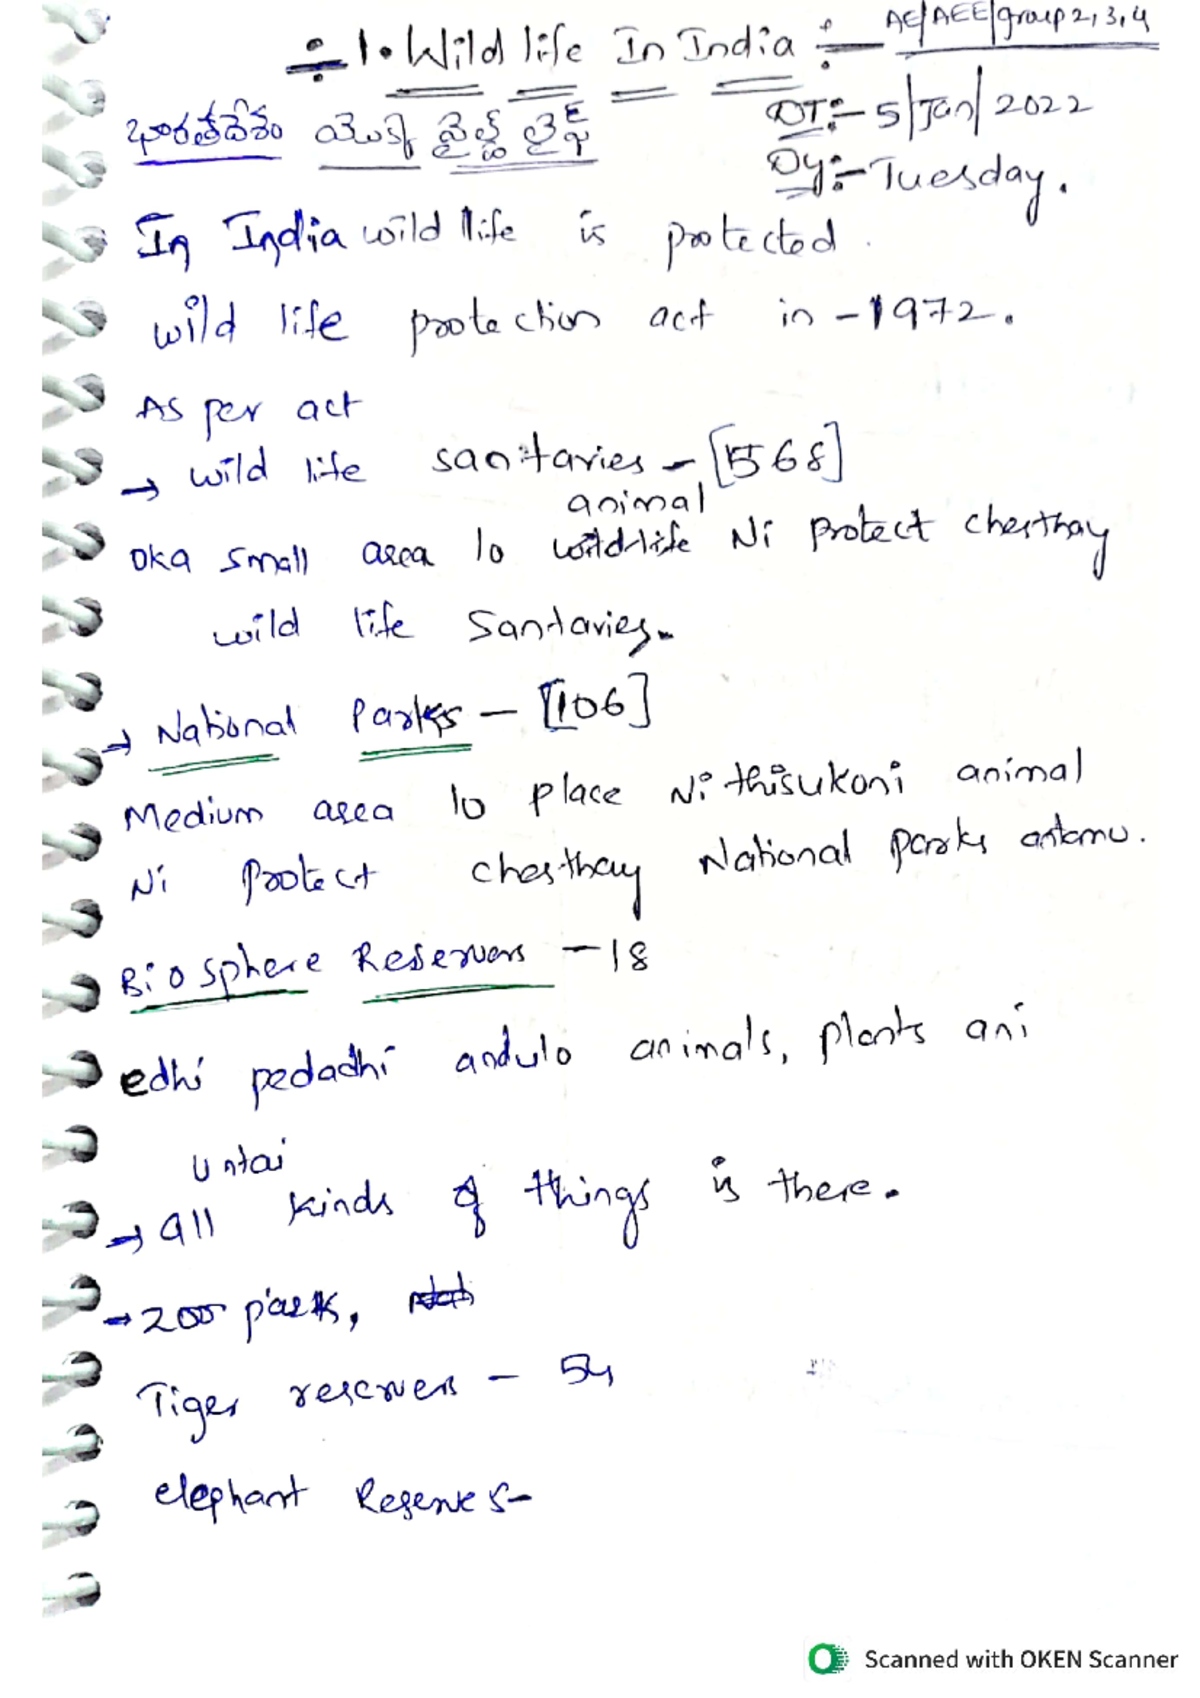 ÷ 1. Wild life In India ÷ AE/AEE/group 2, 3, 4
భారతదేశం యొక్క వైల్డ్ లైఫ్
DT:- 5/Jan/2022
Dy:- Tuesday.
In India wild life is protected.
wild life protection act in - 1972.
As per act
→ wild life sanitaries - [568]
animal
oka small area lo wildlife Ni protect chesthay
wild life Santaries.
→ National Parks - [106]
Medium area lo place Ni thisukoni animal
Ni protect chesthay National parks antamu.
Bio sphere Reservers - 18
edhi pedadhi andulo animals, plants ani
Untai
→ all kinds of things is there.
→ zoo park,
Tiger reservers - 54
elephant Reserves-
Scanned with OKEN Scanner